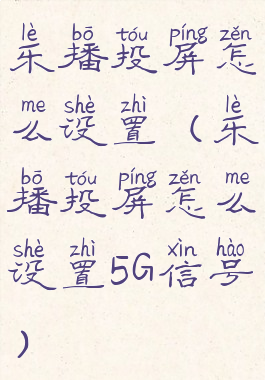 lè bō tóu píng zěn
乐播投屏怎
me shè zhì lè
么设置(乐
bō tóu píng zěn me
播投屏怎么
shè zhì xìn hào
设置5G信号
)